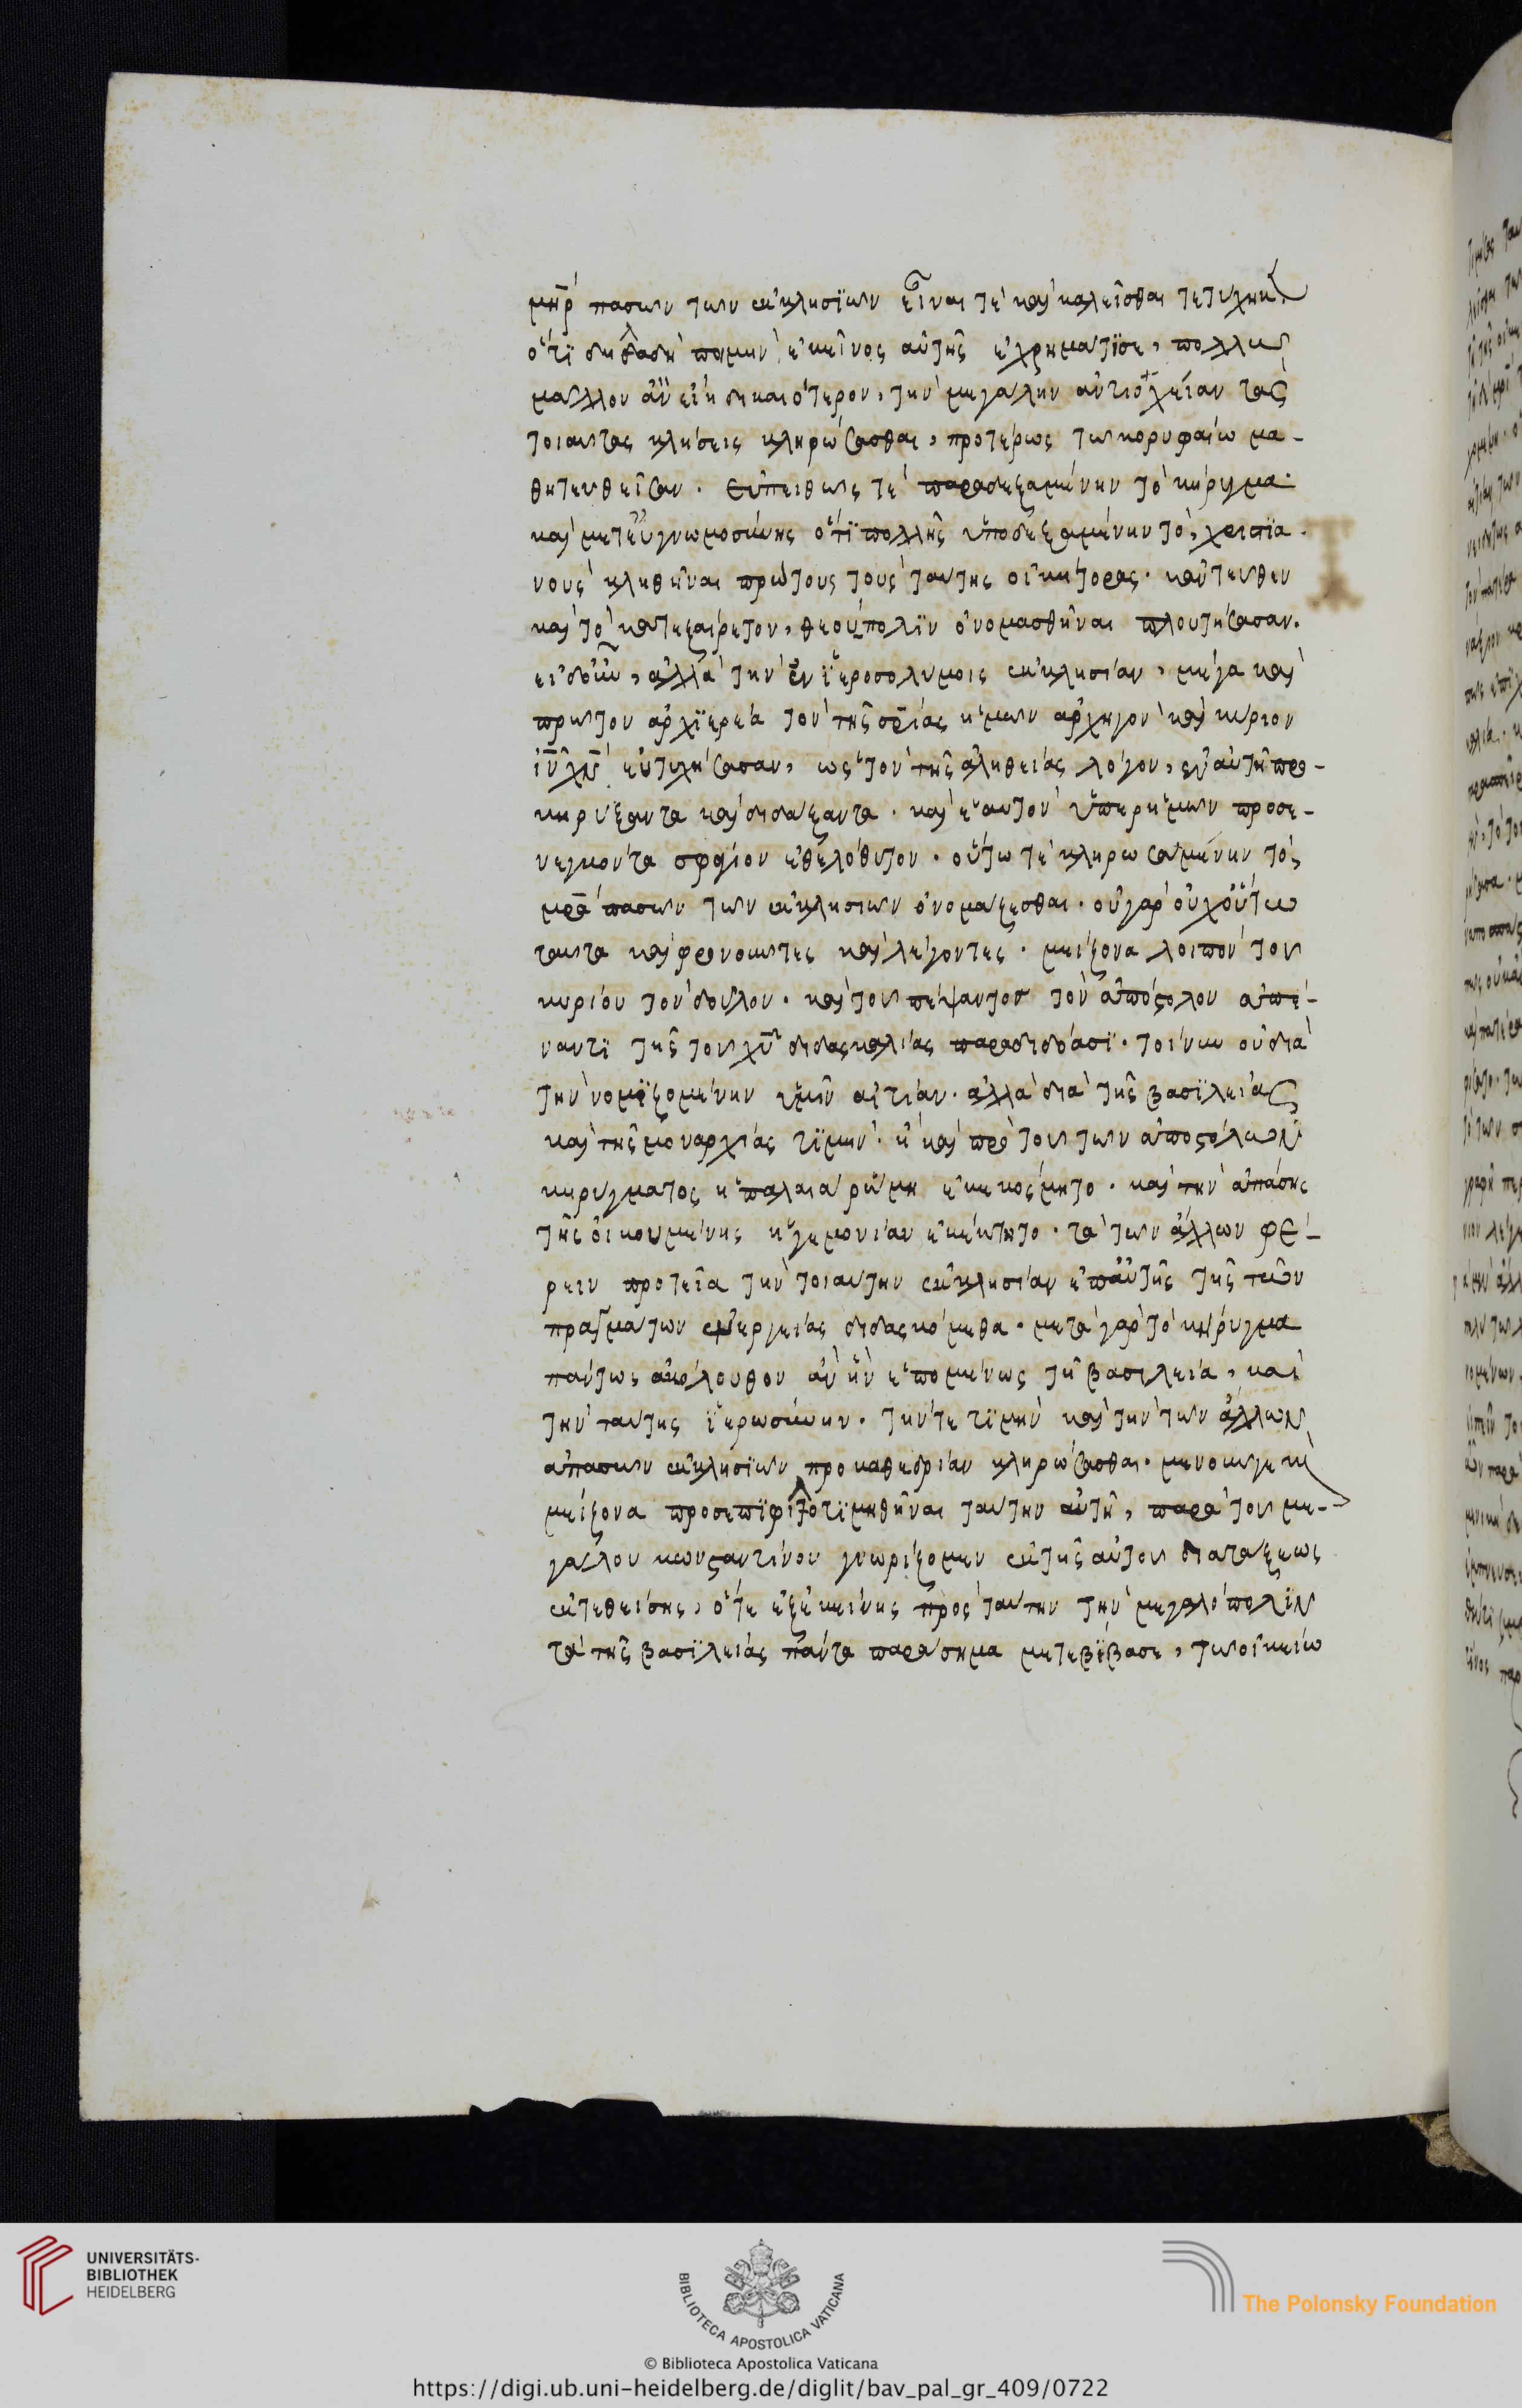 μηρ πασων των εκκλησιων εἶναι τὲ καὶ καλεῖσθαι τετυχηκεν
ὅτι δηλαδὴ ποιμὴν ἐκεῖνος αὐτῆς ἐχρημάτισε, πολλῶ
μᾶλλον ἂν εἴη δικαιότερον, τὴν μεγάλην ἀντιόχειαν τὰς
τοιαύτας κλήσεις κληρώσασθαι, προτέρως τῶ κορυφαίω μα-
θητευθεῖσαν. εὐπειθῶς τὲ παραδεξαμένην τὸ κήρυγμα·
καὶ μετ' εὐγνωμοσύνης ὅτι πολλῆς ὑποδεξαμένην τὸ, χριστια-
νοὺς κληθῆναι πρώτους τοὺς ταύτης οἰκήτορας. κἀντεῦθεν
καὶ τὸ κατεξαίρετον, θεούπολιν ὀνομασθῆναι πλουτήσασαν.
εἰδοῦν, ἀλλὰ τὴν ἐν ἱεροσολύμοις ἐκκλησίαν, μέγα καὶ
πρῶτον ἀρχιερέα τὸν τῆς σρίας ἡμῶν ἀρχηγὸν καὶ κύριον
ἰν χν εὐτυχήσασαν, ὡς τὸν τῆς ἀληθείας λόγον, ἐν αὐτῆ προ-
κηρύξαντα καὶ διδάξαντα. καὶ ἑαυτὸν ὑπὲρ ἡμῶν προσε-
νεγκόντα σφάγιον ἐθελόθυτον. οὕτω τὲ κληρωσαμένην τὸ,
μρα πασῶν τῶν ἐκκλησιῶν ὀνομάζεσθαι. οὐ γὰρ οὐχ οὕτω
ταῦτα καὶ φρονοῦντες καὶ λέγοντες. μείζονα λοιπὸν τοῦ
κυρίου τὸν δοῦλον. καὶ τοῦ πέμψαντος τὸν ἀπόστολον ἀπέ-
ναντι τῆς τοῦ χυ διδασκαλίας παραδιδόασι. τοίνυν οὐ διὰ
τὴν νομιζομένην ὑμῖν αἰτίαν. ἀλλὰ διὰ τῆς βασιλείας
καὶ τῆς μοναρχίας τιμὴν. ἣ καὶ πρὸ τοῦ τῶν ἀποστόλων
κηρύγματος ἡ παλαιὰ ῥώμη ἐκεκόσμητο. καὶ τὴν ἁπάσης
τῆς οἰκουμένης ἡγεμονίαν ἐκέκτητο. τὰ τῶν ἄλλων φέ-
ρειν πρωτεῖα τὴν τοιαύτην ἐκκλησίαν ἐπ' αὐτῆς τῆς τῶν
πραγμάτων ἐνεργείας διδασκόμεθα. μετὰ γὰρ τὸ κήρυγμα
πάντως ἀκόλουθον ἂν ἦν ἑπομένως τῆ βασιλεία, καὶ
τὴν ταύτης ἱερωσύνην. τήν τε τιμὴν καὶ τὴν τῶν ἄλλων
ἁπασῶν ἐκκλησιῶν προκαθεδρίαν κληρώσασθαι. μενοῦνγε καὶ
μείζονα προσεπιφιλοτιμηθῆναι ταύτην αὐτῆ, παρὰ τοῦ με-
γάλου κωνσταντίνου γνωρίζομεν ἐκ τῆς αὐτοῦ διατάξεως
ἐκτεθείσης, ὅτε ἐξ ἐκείνης πρὸς ταύτην τὴν μεγαλόπολιν
τὰ τῆς βασιλείας πάντα παράσημα μετεβίβασε, τῶ οἰκείω
UNIVERSITÄTS-
BIBLIOTHEK
HEIDELBERG
BIBLIOTECA APOSTOLICA VATICANA
The Polonsky Foundation
© Biblioteca Apostolica Vaticana
https://digi.ub.uni-heidelberg.de/diglit/bav_pal_gr_409/0722